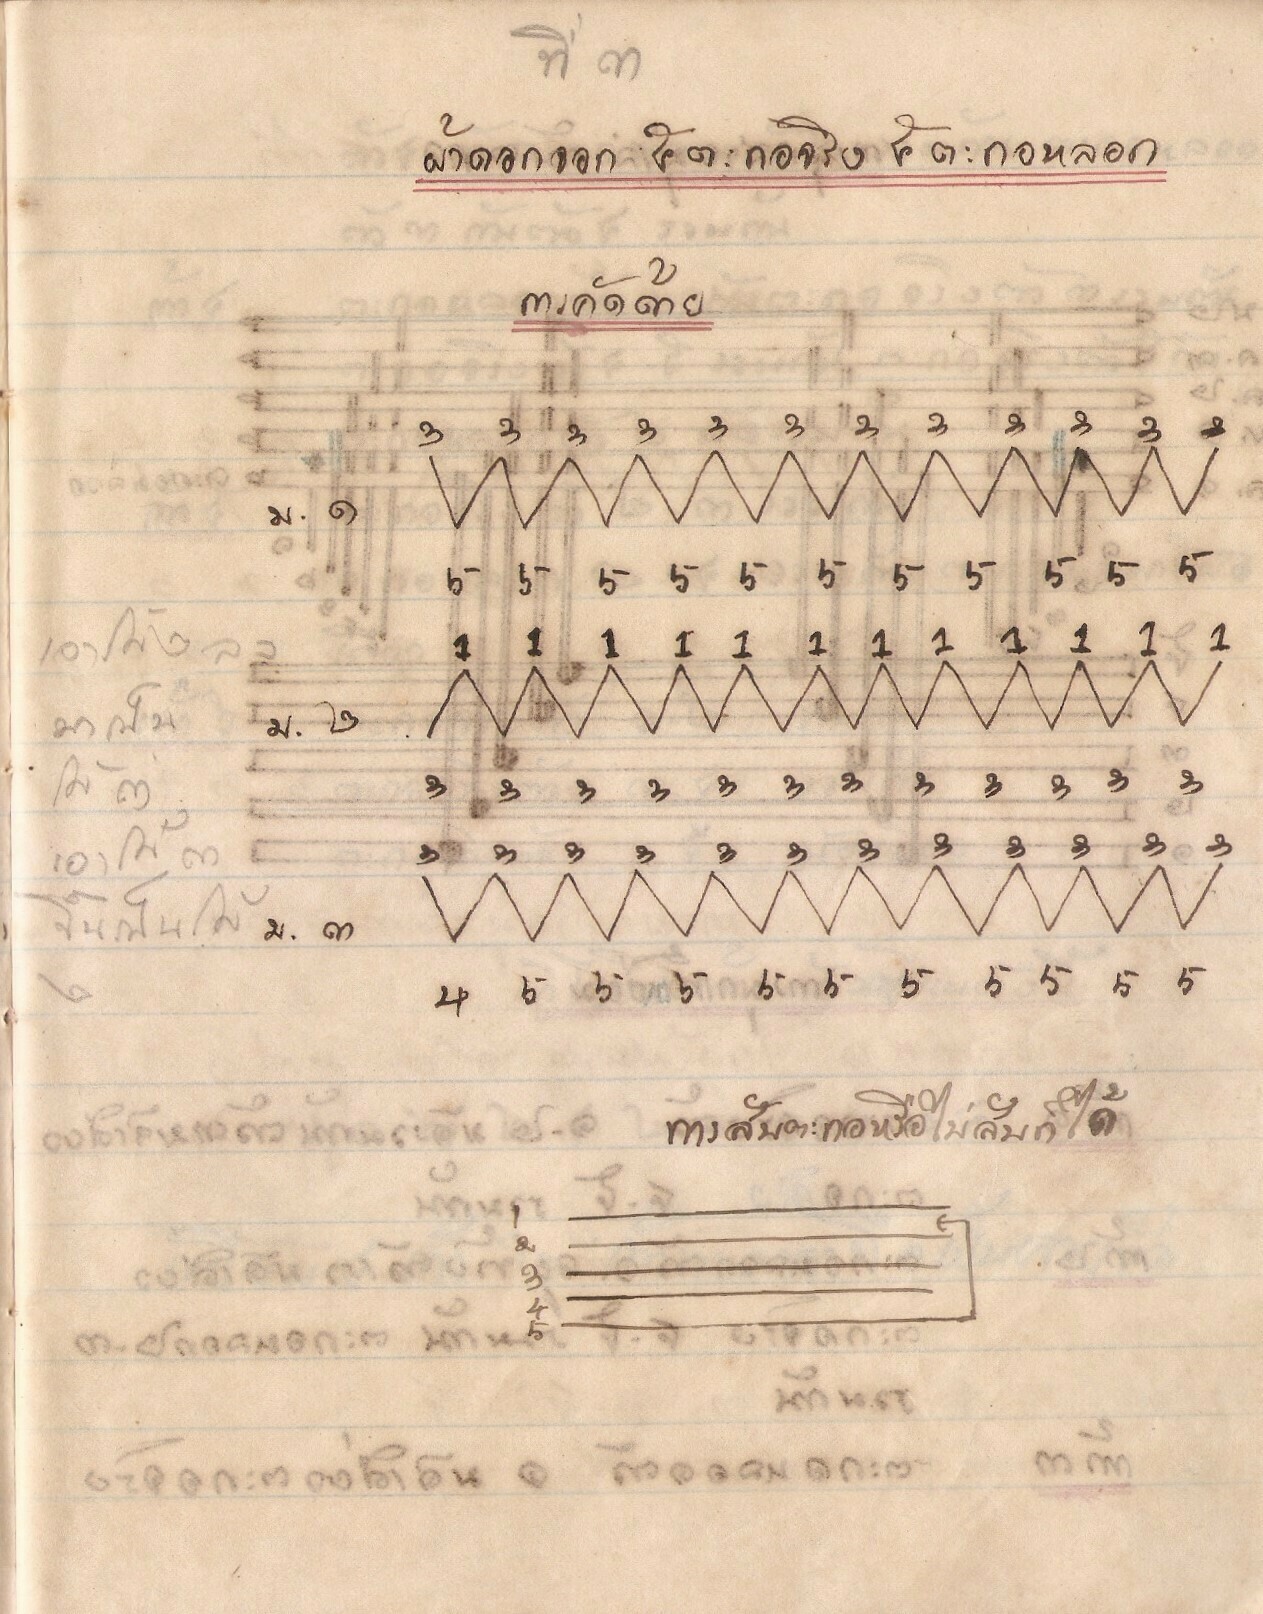 ที่ ๓
ผ้าดอกจอก ๕ ตะกอจริง ๕ ตะกอหลอก
การคัดด้าย
3 3 3 3 3 3 3 3 3 3 3 3
ม. ๑
5 5 5 5 5 5 5 5 5 5 5
1 1 1 1 1 1 1 1 1 1 1 1
ม. ๒
3 3 3 3 3 3 3 3 3 3 3 3
3 3 3 3 3 3 3 3 3 3 3 3
ม. ๓
4 5 5 5 5 5 5 5 5 5 5
เอาไม้ ๑ ลง
มาเป็น
ไม้ ๓
เอาไม้ ๓
ขึ้นเป็นไม้
๒
การสับตะกอหรือไม่สับก็ได้
1
2
3
4
5